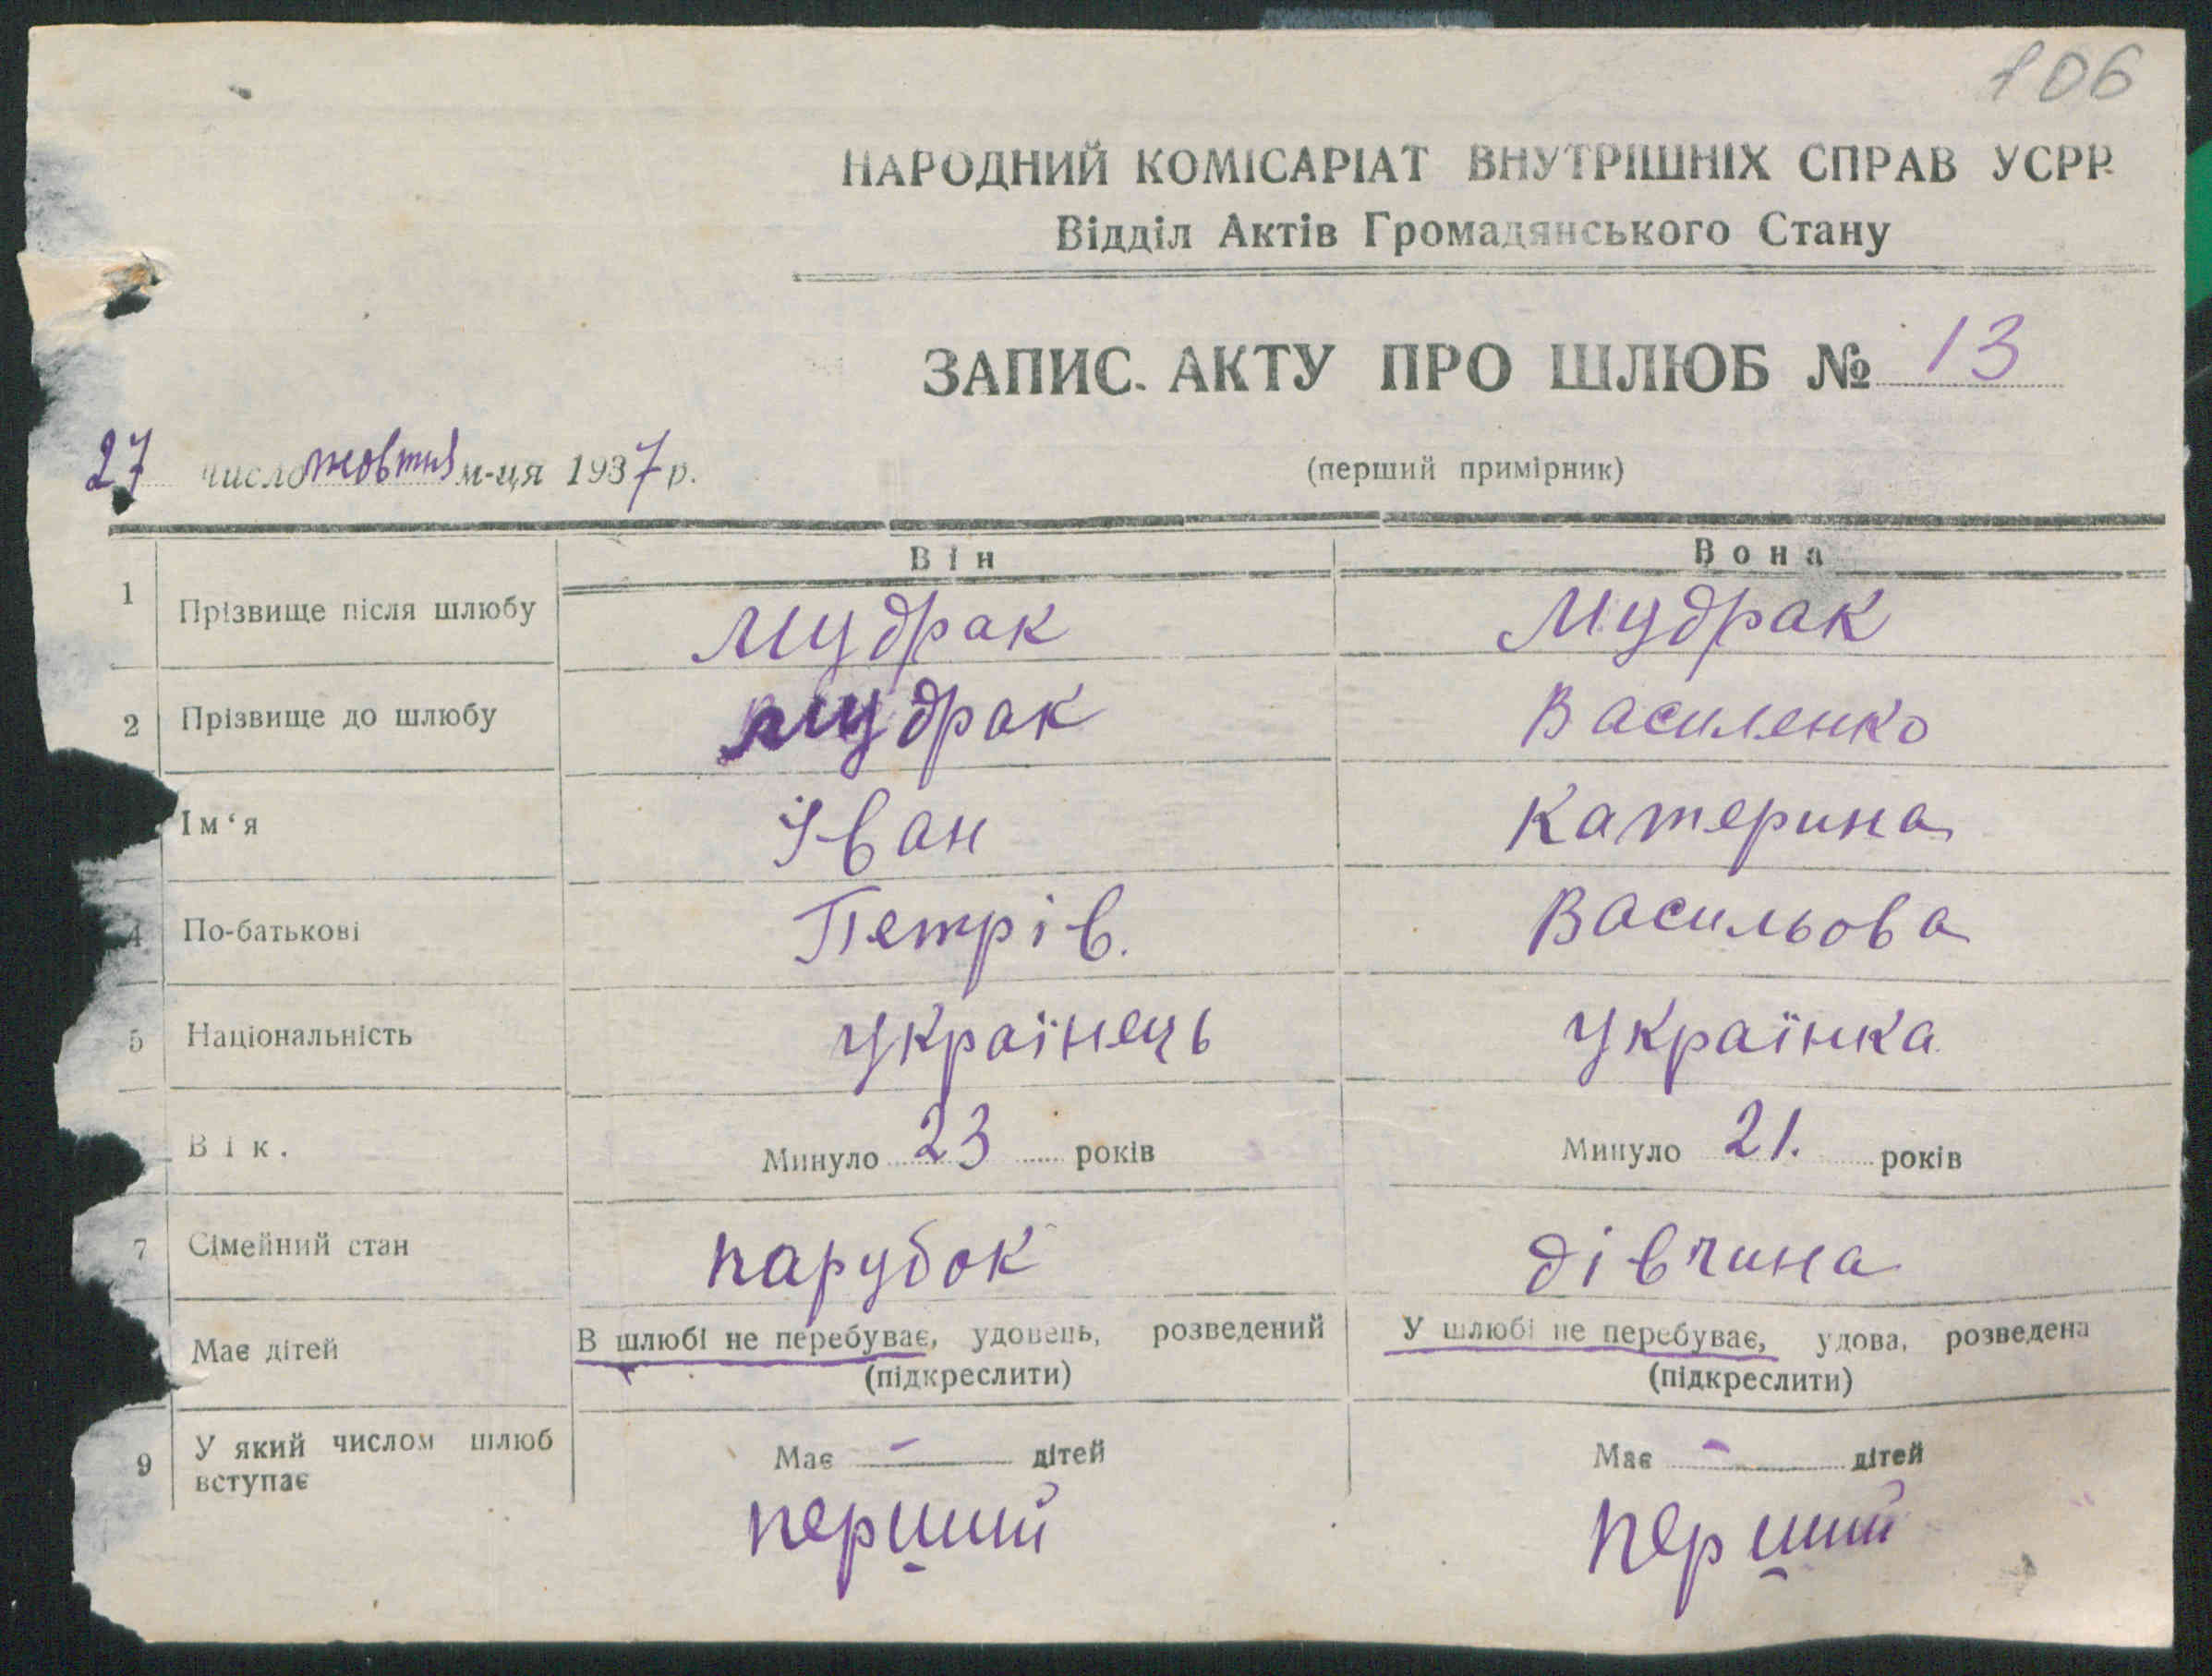 106
НАРОДНИЙ КОМІСАРІАТ ВНУТРІШНІХ СПРАВ УСРР
Відділ Актів Громадянського Стану
ЗАПИС АКТУ ПРО ШЛЮБ № 13
27 число жовтня м-ця 1937 р.
(перший примірник)
Він Вона
1 Прізвище після шлюбу Мудрак Мудрак
2 Прізвище до шлюбу Мудрак Василенко
Ім‘я Іван Катерина
4 По-батькові Петрів. Васильова
5 Національність українець українка
Вік. Минуло 23 років Минуло 21. років
7 Сімейний стан парубок дівчина
Має дітей В шлюбі не перебуває, удовець, розведений У шлюбі не перебуває, удова, розведена
(підкреслити) (підкреслити)
9 У який числом шлюб Має – дітей Має – дітей
вступає
перший перший